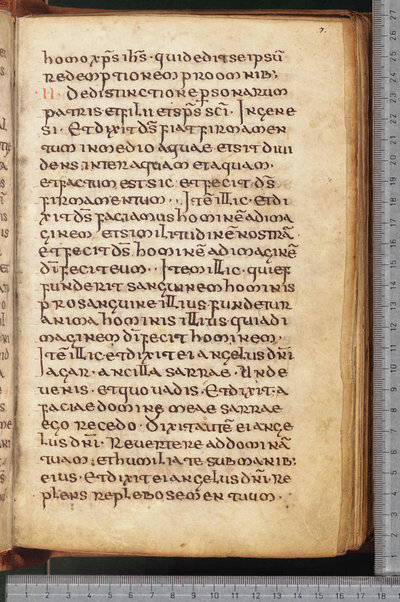 7.
homo xp̄s ih̄s · qui dedit se ipsū
redemptionem pro omnib;
II · De distinctione personarum
patris et filii et sp̄s sc̄i · In gene
si · Et dixit d̄s fiat firmamen
tum in medio aquae et sit diui
dens inter aquam et aquam ·
et factum est sic · et fecit d̄s
firmamentum · Itē illic · et di
xit d̄s faciamus hominē ad ima
ginem et similitudinē nostrā ·
et fecit d̄s hominē ad imaginē
dī fecit eum · Item illic · qui ef
fuderit sanguinem hominis
pro sanguine illius fundetur
anima hominis illius quia di
maginem dī fecit hominem ·
Itē illic · et dixit ei angelus dn̄i
agar · ancilla sarrae · Unde
uenis · et quo uadis · Et dixit · a
facie dominę meae sarrae
ego recedo · dixit autē ei ange
lus dn̄i · Reuertere ad dominā
tuam · et humilia te sub manib;
eius · Et dixit ei angelus dn̄i · Re
plens replebo semen tuum ·